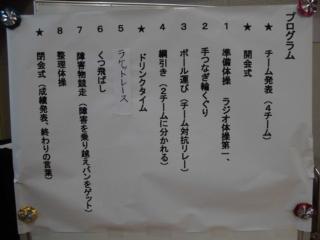 プログラム
★ チーム発表(4チーム)
★ 開会式
1 準備体操 ラジオ体操第一、
2 手つなぎ輪くぐり
3 ボール運び(チーム対抗リレー)
4 綱引き(2チームに分かれる)
★ ドリンクタイム
5 ラケットレース
6 くつ飛ばし
7 障害物競走(障害を乗り越えパンをゲット)
8 整理体操
★ 閉会式(成績発表、終わりの言葉)